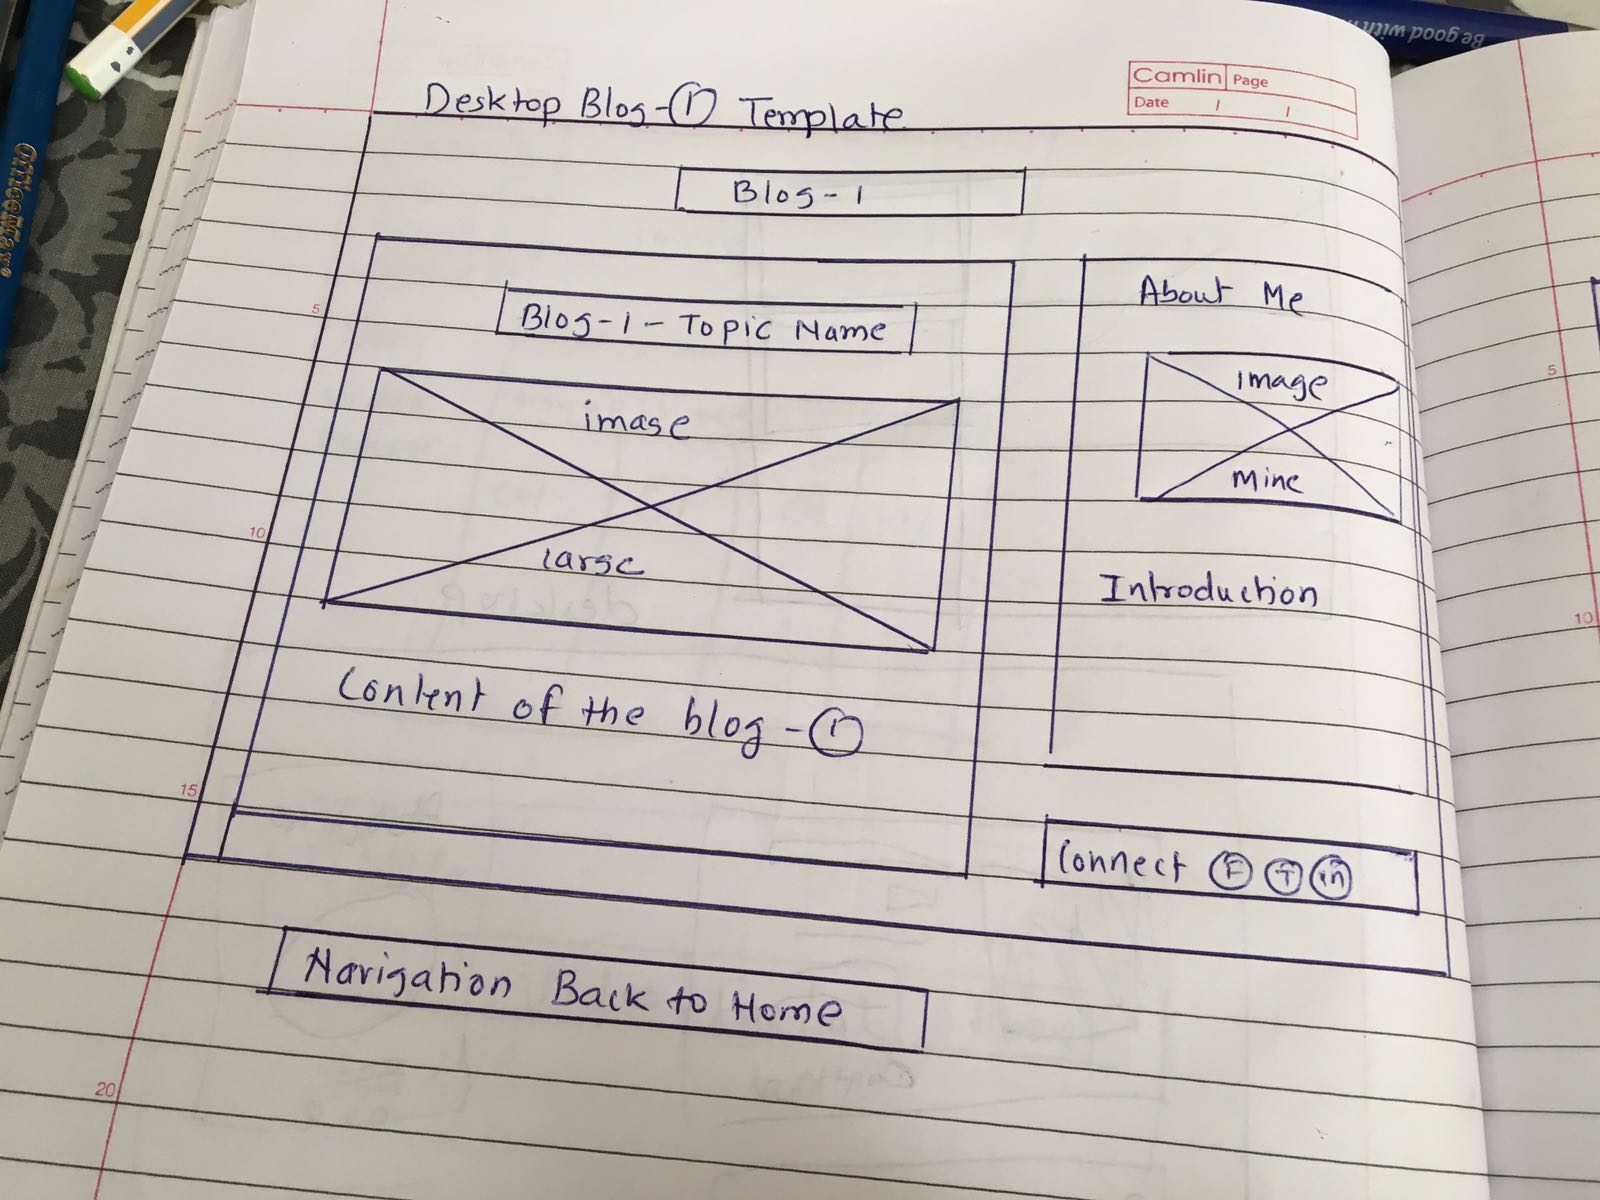 Be good with
Camlin Page
Date / /
Desktop Blog-① Template
Blog-1
Blog-1-Topic Name
image
large
Content of the blog-①
About Me
image
Mine
Introduction
Connect F T in
Navigation Back to Home
5
10
15
20
5
10
OfficeMate